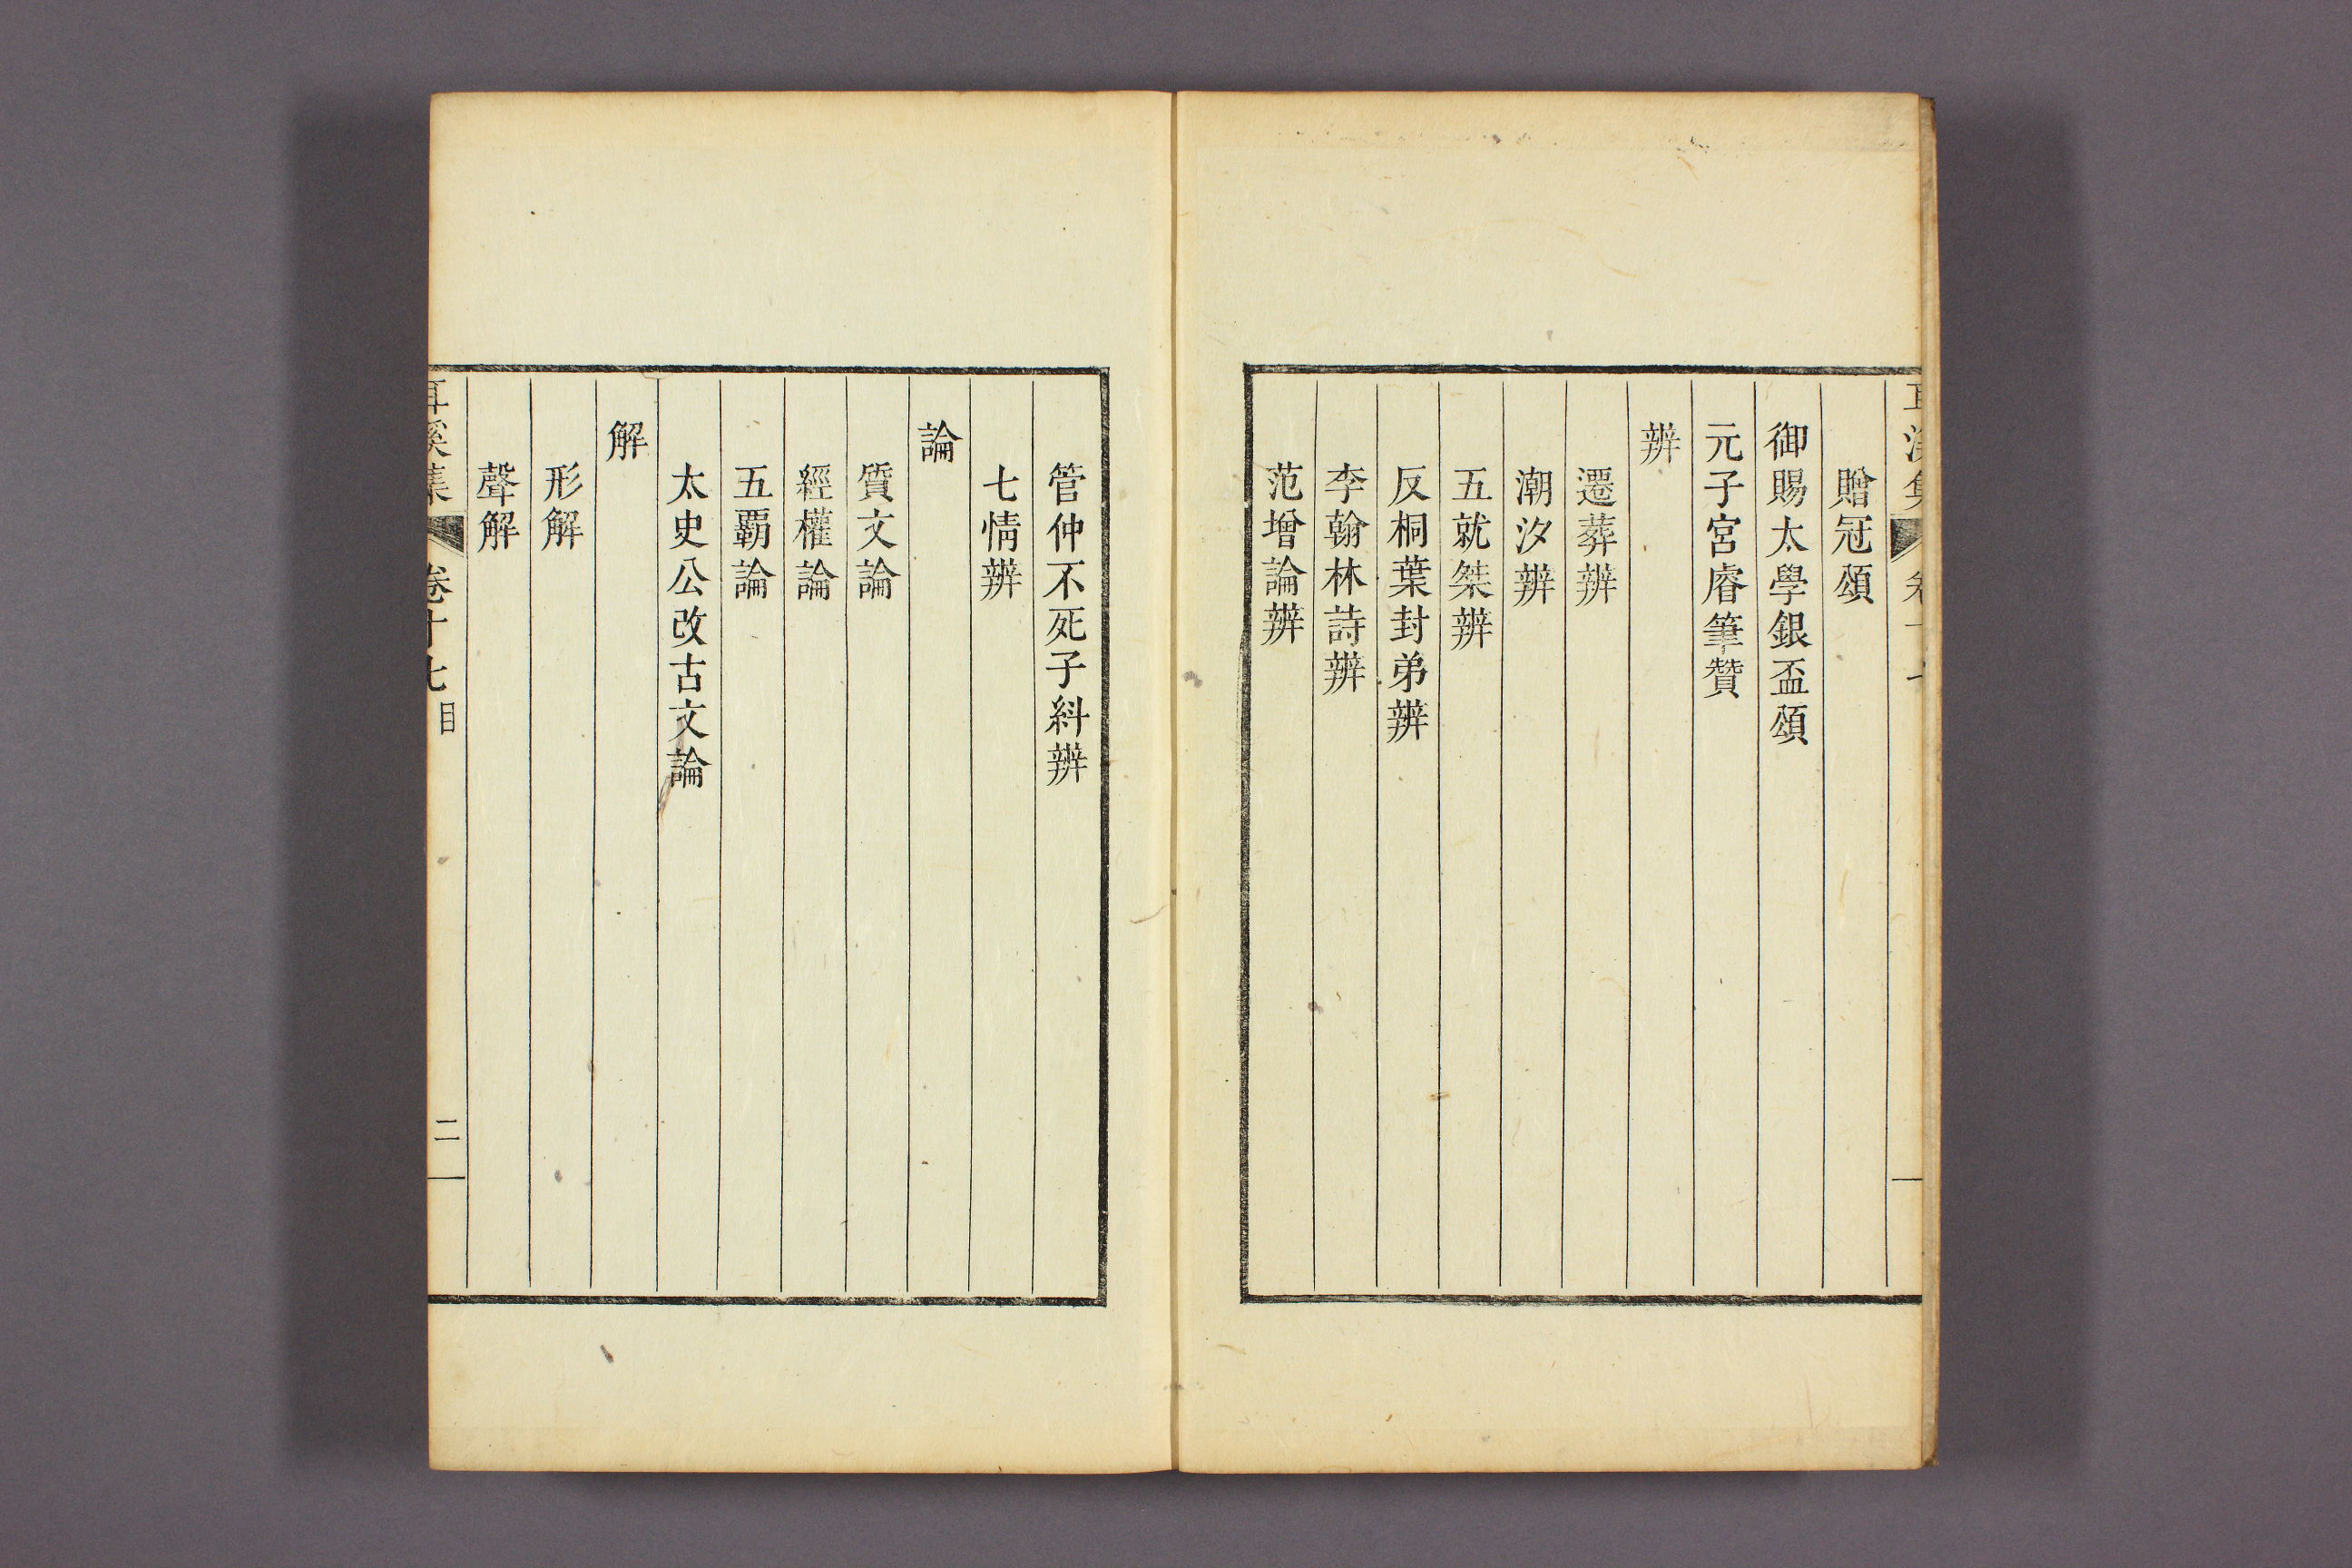 贈冠頌
御賜太學銀盃頌
元子宮睿筆贊
辨
遷葬辨
潮汐辨
五就桀辨
反桐葉封弟辨
李翰林詩辨
范增論辨
管仲不死子糾辨
七情辨
論
質文論
經權論
五覇論
太史公改古文論
解
形解
聲解
耳溪集 卷十七 目 二